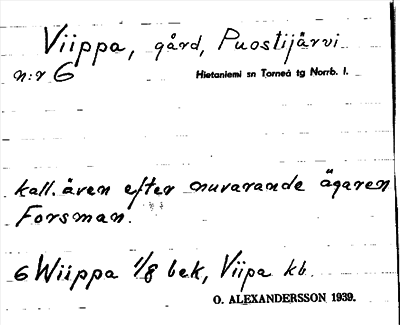 Viippa, gård, Puostijärvi
n:r 6 Hietaniemi sn Torneå tg Norrb. l.
kall. även efter nuvarande ägaren
Forsman.
6 Wiippa 1/8 bek, Viipa kb.
O. ALEXANDERSSON 1939.